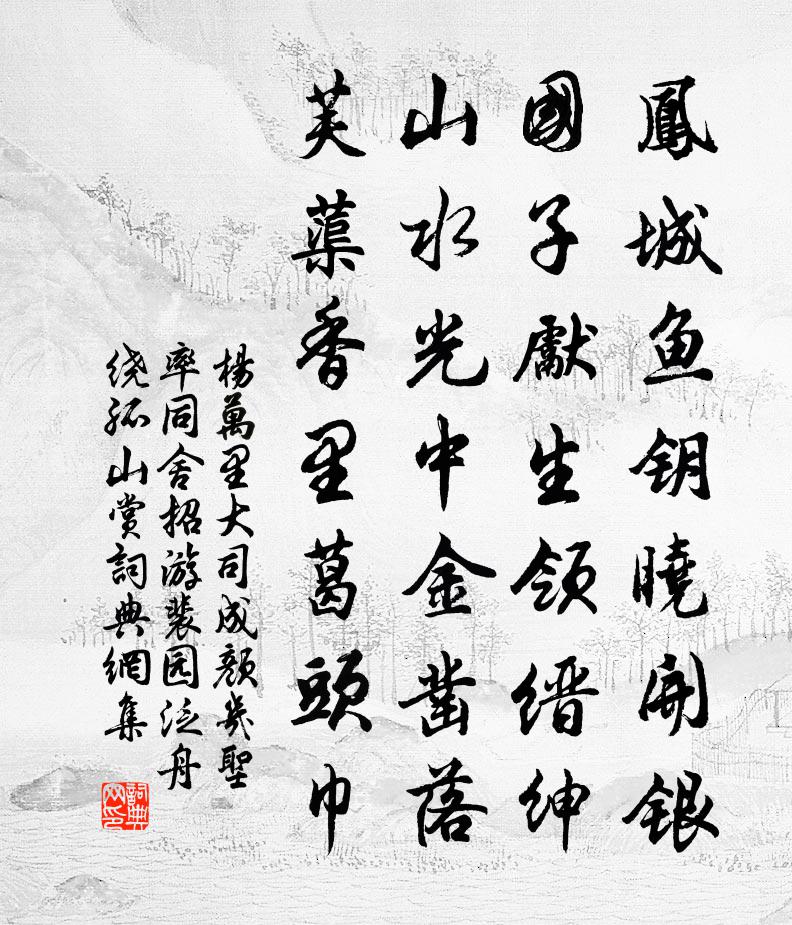 鳳城鱼钥曉開銀
國子獻生領缙紳
山水光中金凿落
芙蕖香里葛頭巾
楊萬里大司成顏㡬聖
率同舍招游裴园泛舟
绕孤山赏詞典網集
詞典网印